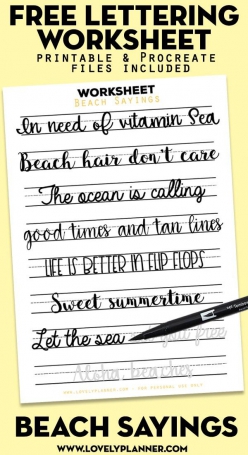 FREE LETTERING
WORKSHEET
PRINTABLE & PROCREATE
FILES INCLUDED
WORKSHEET
Beach Sayings
In need of vitamin Sea
Beach hair don't care
The ocean is calling
good times and tan lines
LIFE IS BETTER IN FLIP FLOPS
Sweet summertime
Let the sea set you free
Aloha, beaches
WWW.LOVELYPLANNER.COM - FOR PERSONAL USE ONLY
BEACH SAYINGS
WWW.LOVELYPLANNER.COM